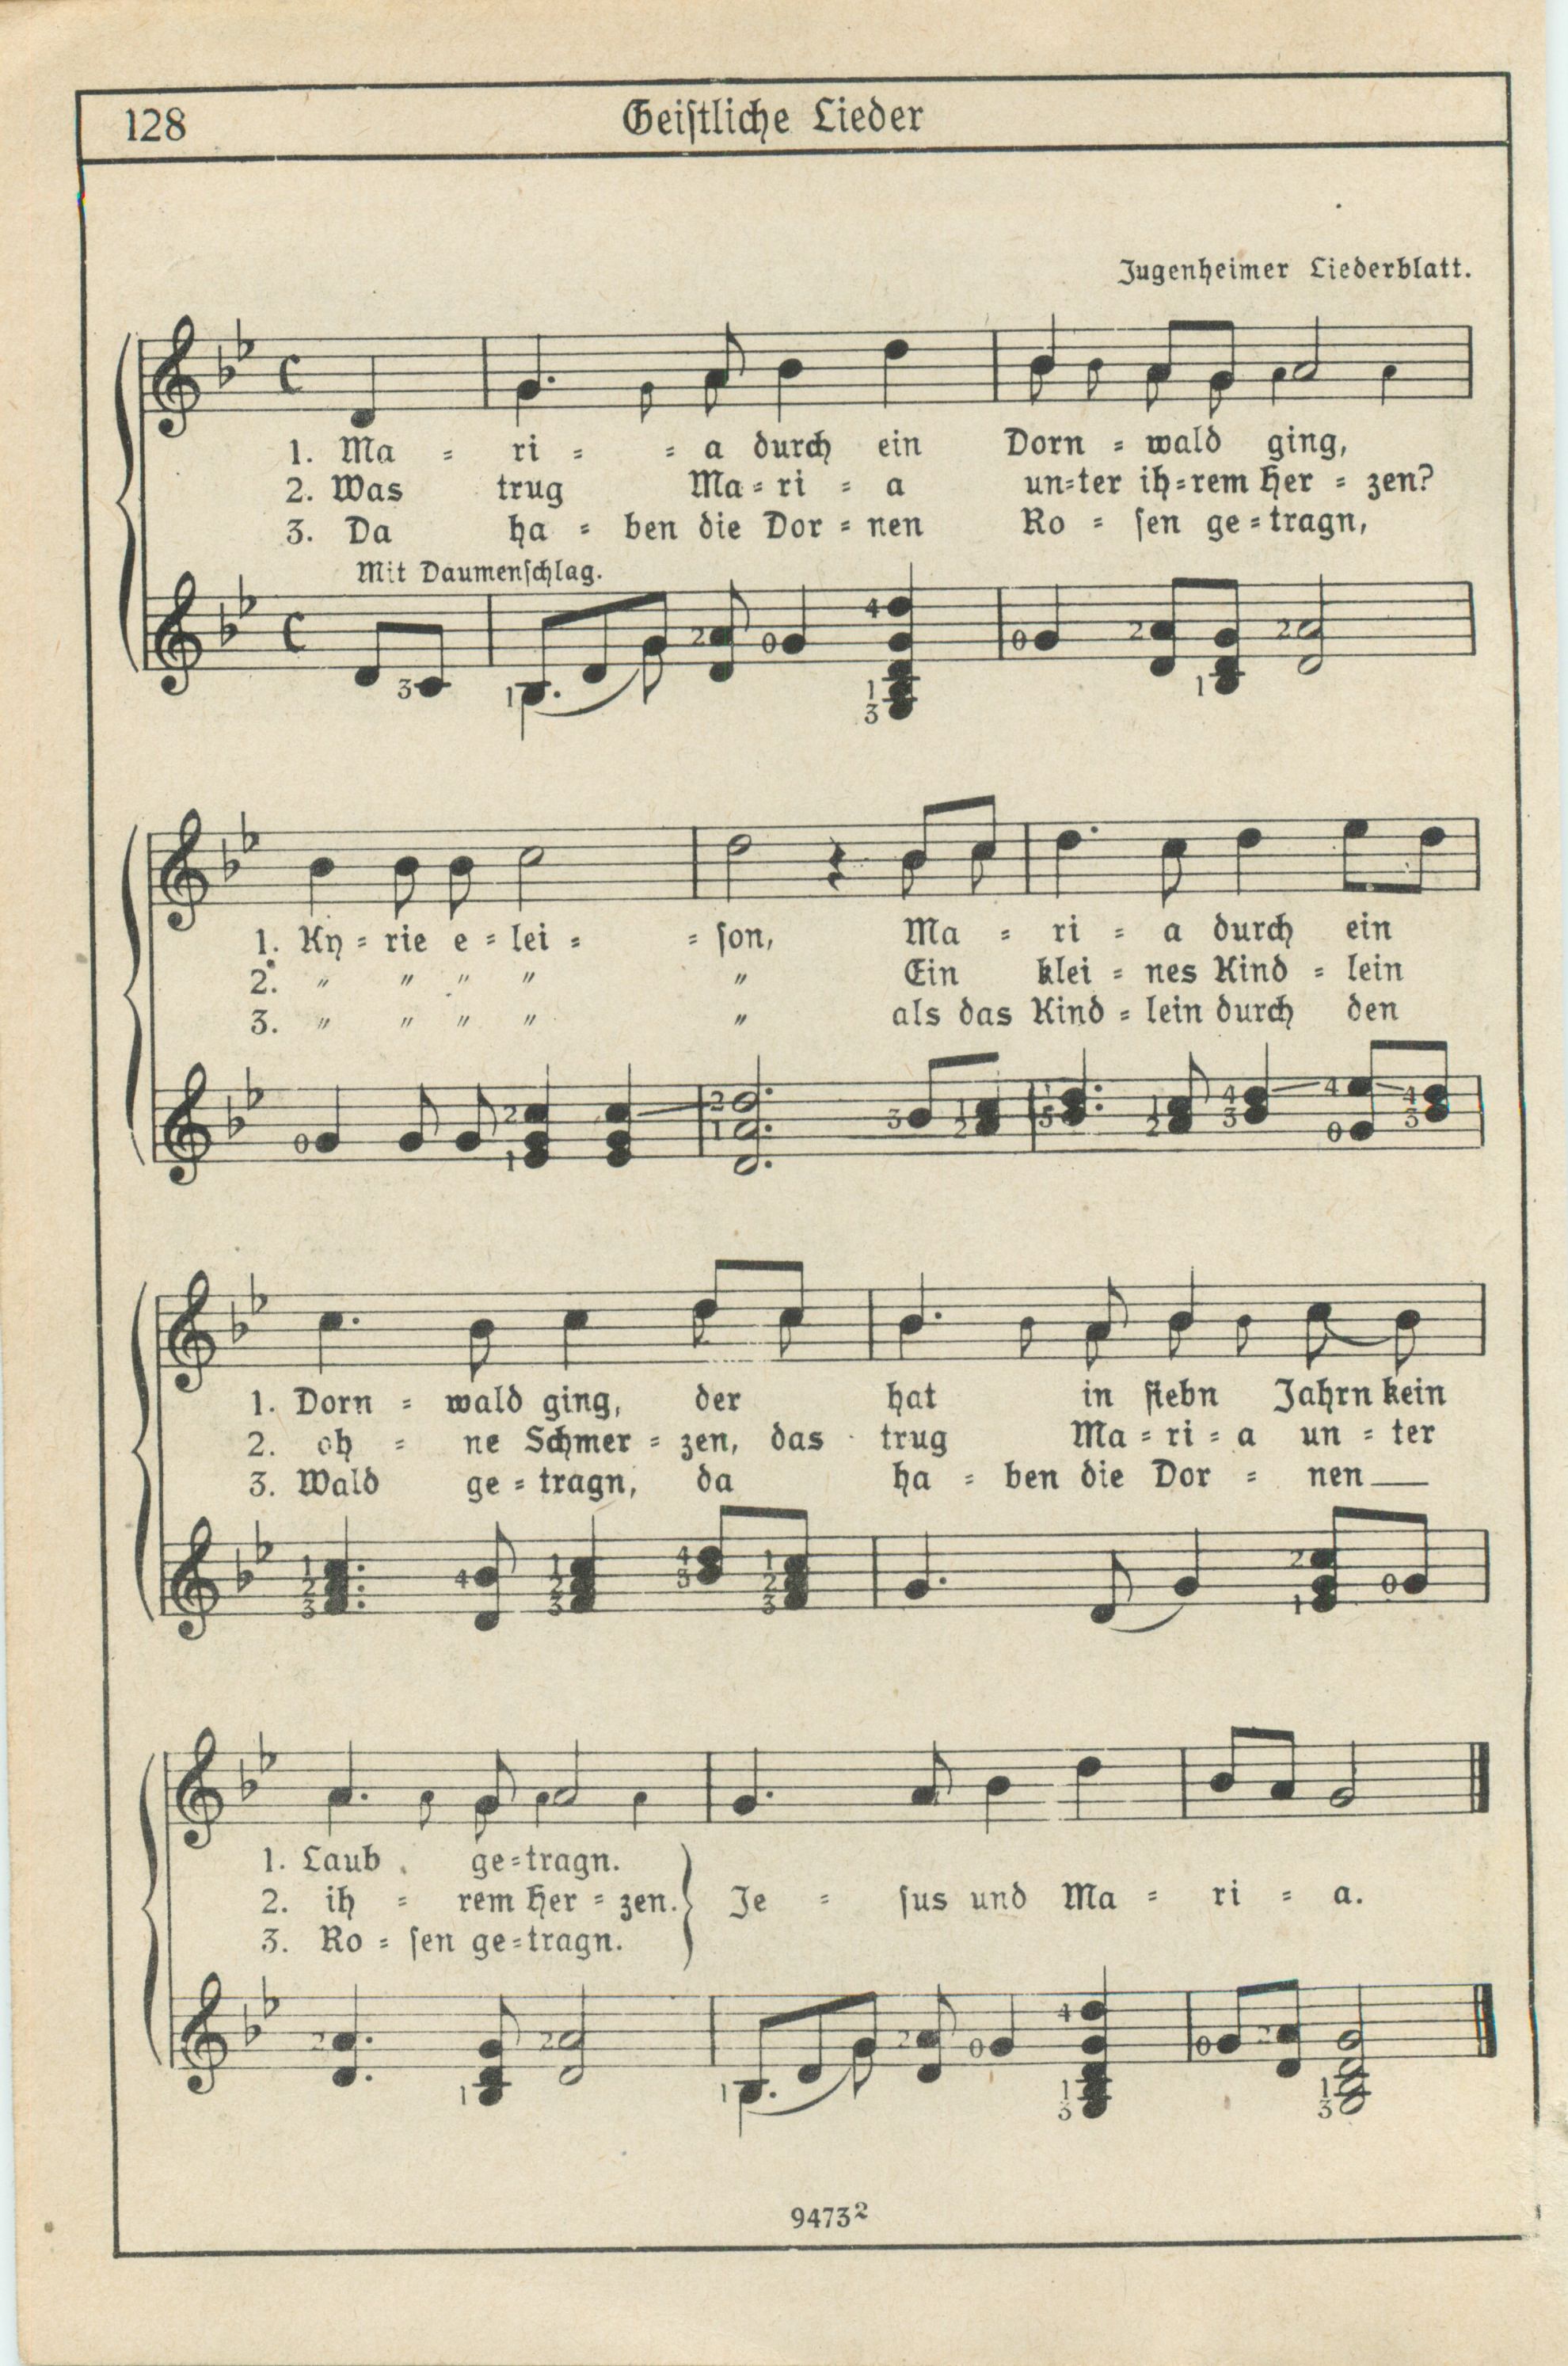 128
Geiſtliche Lieder
Jugenheimer Liederblatt.
1. Ma - ri - - a durch ein Dorn - wald ging,
2. Was trug Ma-ri - a un-ter ih-rem Her - zen?
3. Da ha - ben die Dor - nen Ro - ſen ge-tragn,
Mit Daumenſchlag.
3 1 2 0 4 1 3 0 2 1 2
1. Ky - rie e - lei - - ſon, Ma - ri - a durch ein
2. " " " " " Ein klei - nes Kind - lein
3. " " " " " als das Kind - lein durch den
0 2 1 2 1 3 1 2 1 3 1 2 4 3 4 0 4 3
1. Dorn - wald ging, der hat in ſiebn Jahrn kein
2. oh - ne Schmer - zen, das trug Ma - ri - a un - ter
3. Wald ge - tragn, da ha - ben die Dor - nen
1 2 3 4 1 2 3 4 3 1 2 3 2 1 0
1. Laub ge-tragn.
2. ih - rem Her - zen. Je - ſus und Ma - ri - a.
3. Ro - ſen ge-tragn.
2 1 2 1 2 0 4 1 3 0 2 1 3
9473²